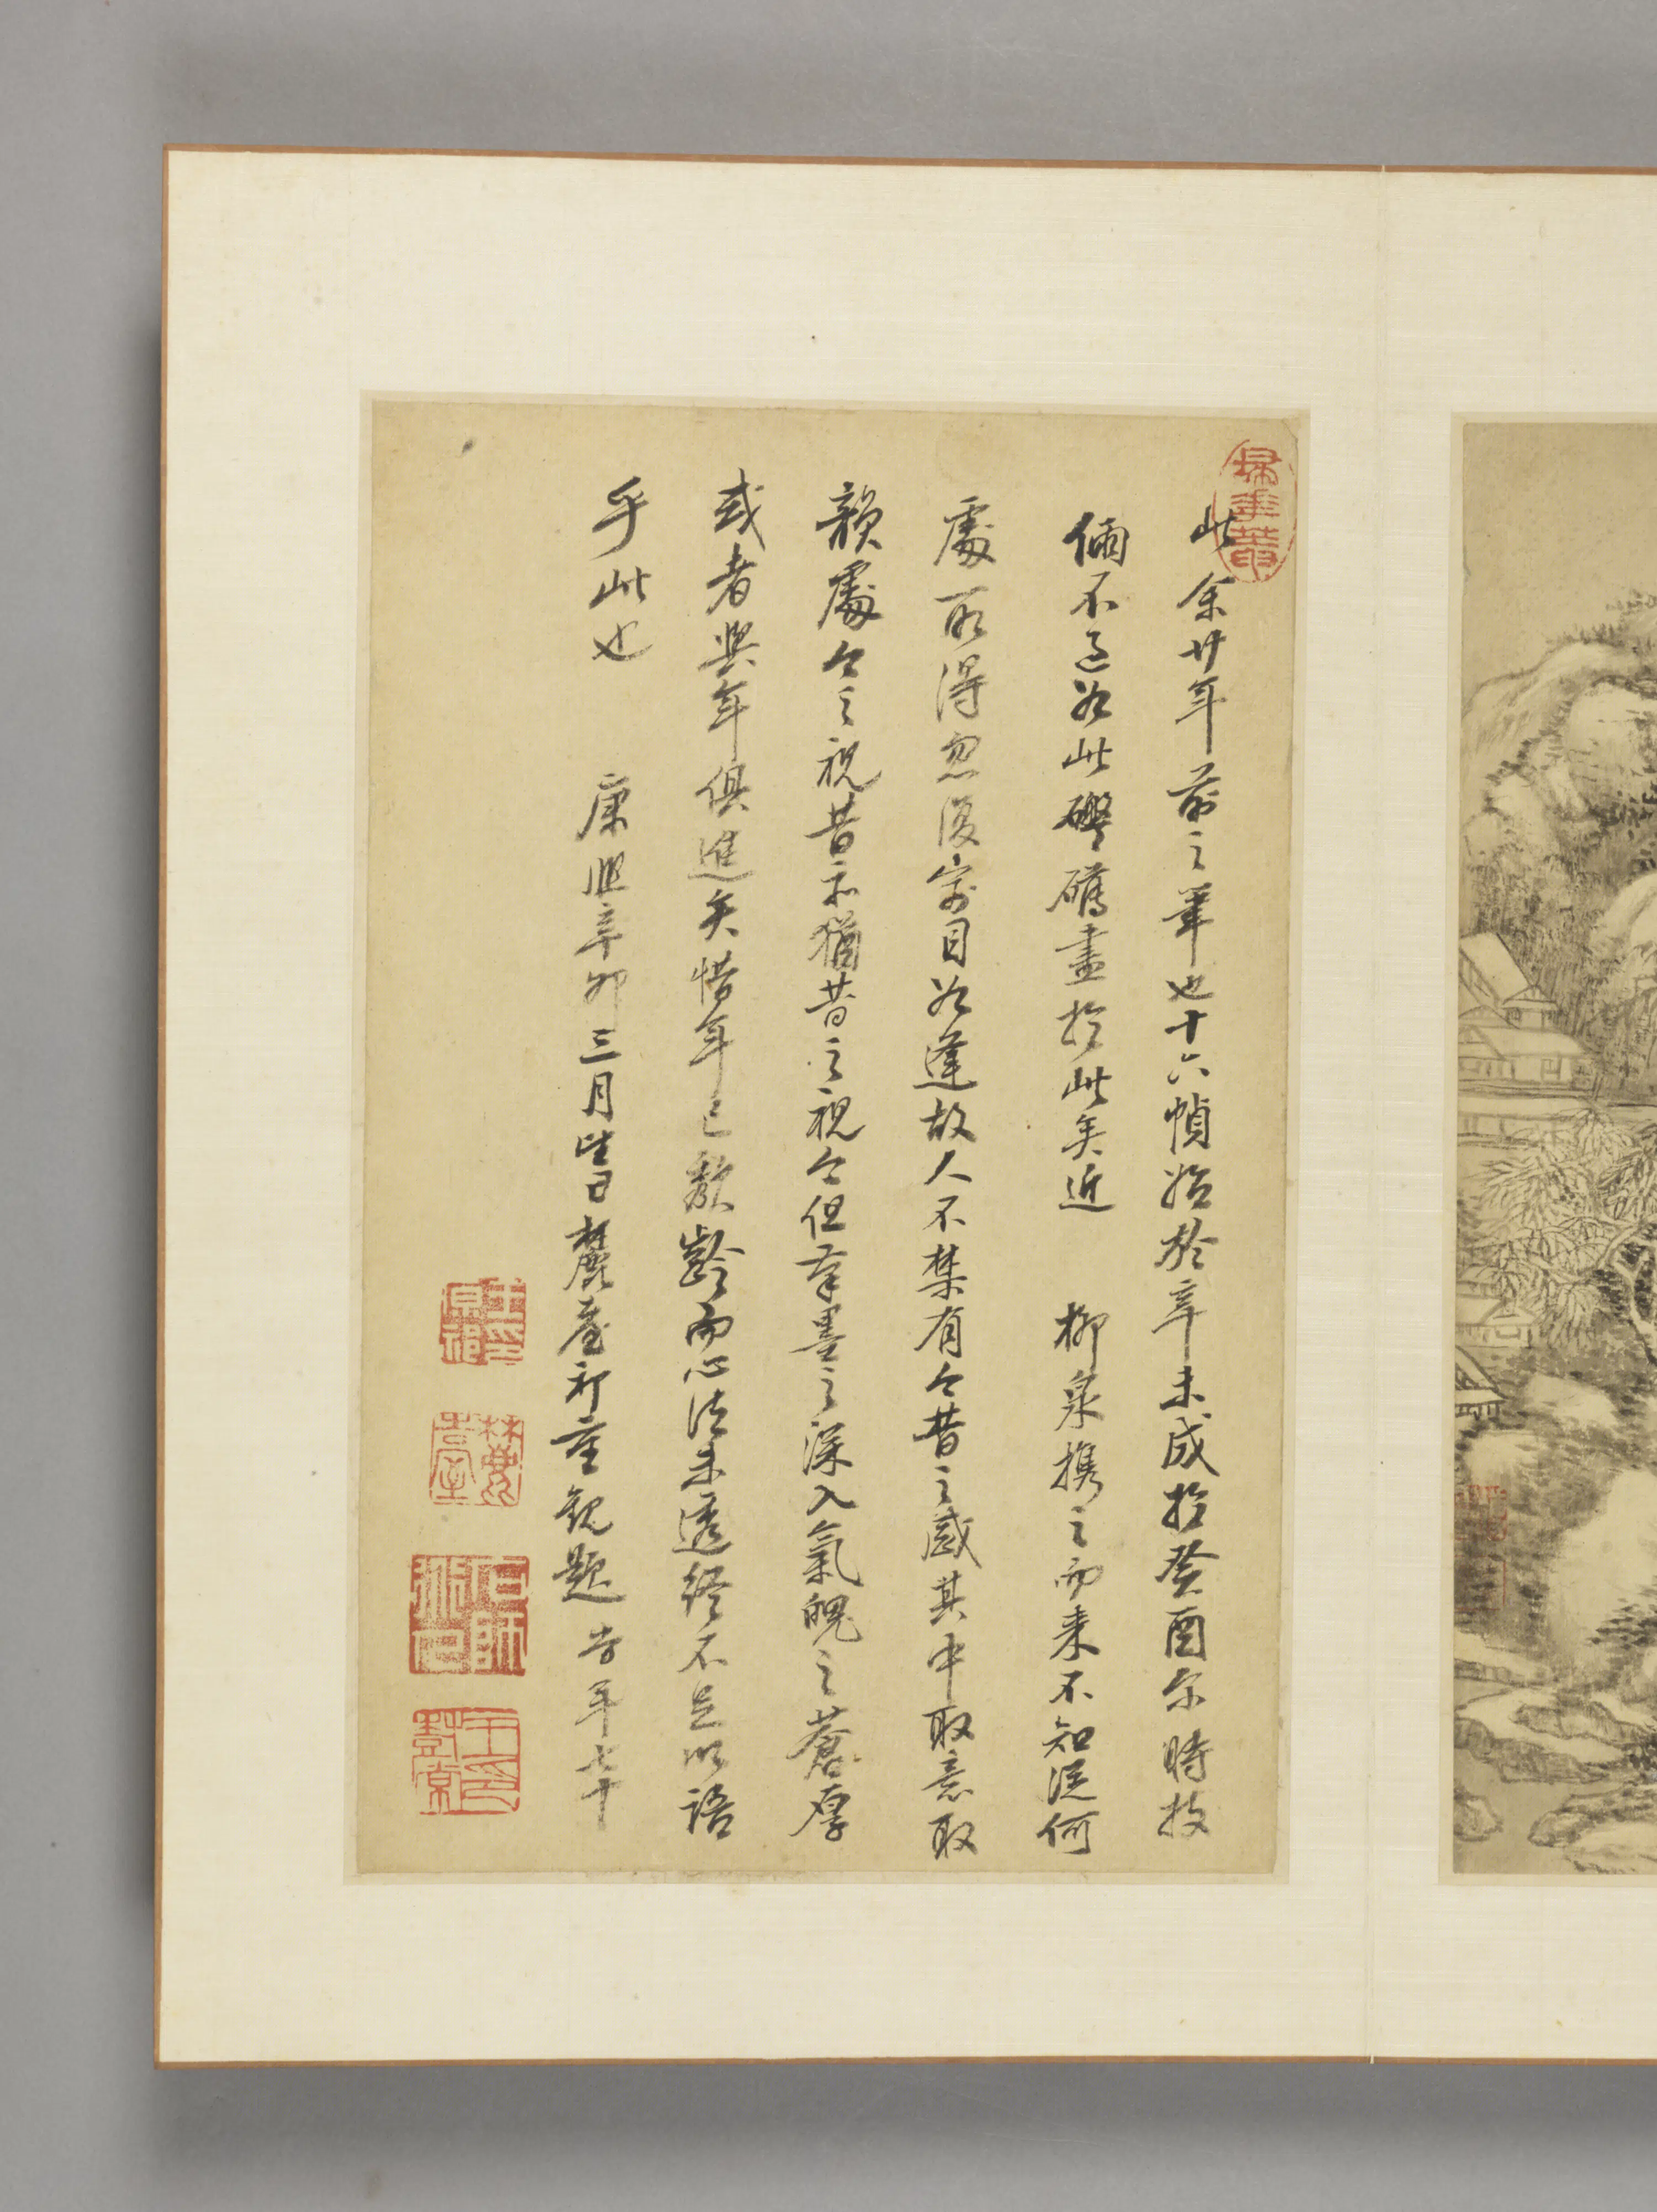 此余廿年前之筆也十六幀始於辛未成於癸酉尔時技
倆不過如此礬礴盡於此矣近 柳泉携之而来不知從何
處所得忽復寓目如逢故人不禁有今昔之感其中取意取
韻處今之視昔亦猶昔之視今但筆墨之深入氣魄之蒼厚
或者與年俱進矣惜年已頹齡而心法未透終不足以語
乎此也 康熙辛卯三月望日麓臺祁重觀題 時年七十
掃花葊
王原祁印
麓臺
石師道人